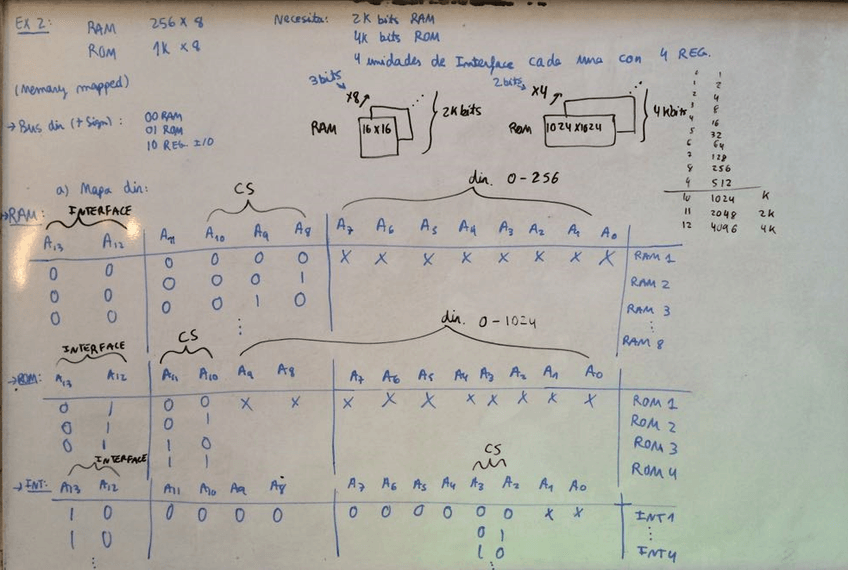 EX 2: RAM 256 x 8 Necesita: 2K bits RAM
ROM 1K x 8 4K bits ROM
4 unidades de Interface cada una con 4 REG.
(Memory mapped)
→ Bus dir (+ sign): 00 RAM
01 ROM
10 REG. I/O
3 bits x8
RAM 16x16 2K bits
2 bits x4
ROM 1024x1024 4K bits
0 1
1 2
2 4
3 8
4 16
5 32
6 64
7 128
8 256
9 512
10 1024 K
11 2048 2K
12 4096 4K
a) Mapa dir:
→ RAM: INTERFACE CS dir. 0-256
A13 A12 A11 A10 A9 A8 A7 A6 A5 A4 A3 A2 A1 A0
0 0 0 0 0 0 X X X X X X X X RAM 1
0 0 0 0 0 1 RAM 2
0 0 0 0 1 0 RAM 3
⋮ ⋮
RAM 8
INTERFACE CS dir. 0-1024
→ ROM: A13 A12 A11 A10 A9 A8 A7 A6 A5 A4 A3 A2 A1 A0
0 1 0 0 X X X X X X X X X X ROM 1
0 1 0 1 ROM 2
0 1 1 0 ROM 3
1 1 ROM 4
INTERFACE CS
→ INT: A13 A12 A11 A10 A9 A8 A7 A6 A5 A4 A3 A2 A1 A0
1 0 0 0 0 0 0 0 0 0 0 0 X X INT 1
1 0 0 1 ⋮
1 0 INT 4
⋮ ⋮